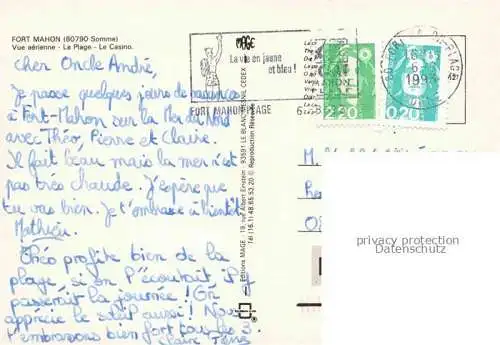 FORT MAHON (80790 Somme)
Vue aérienne - La Plage - Le Casino.
Cher Oncle André,
Je passe quelques jours de vacances
à Fort-Mahon sur la Mer du Nord
avec Théo, Pierre et Claire.
Il fait beau mais la mer n'est
pas très chaude. J'espère que
tu vas bien. Je t'embrasse à bientôt
Mathieu.
Théo profite bien de la
plage, si on l'écoutait, il y
passerait la journée ! On
apprécie le soleil aussi ! Nous
t'embrassons bien fort tous les 3.
Claire
MAGE
La vie en jaune
et bleu !
FORT MAHON PLAGE
2,20
0,20
1993
Editions MAGE - 19, rue Albert Einstein - 93591 LE BLANC MESNIL CEDEX
Tél (16.1) 48.65.52.20 © Reproduction
M.
privacy protection
Datenschutz